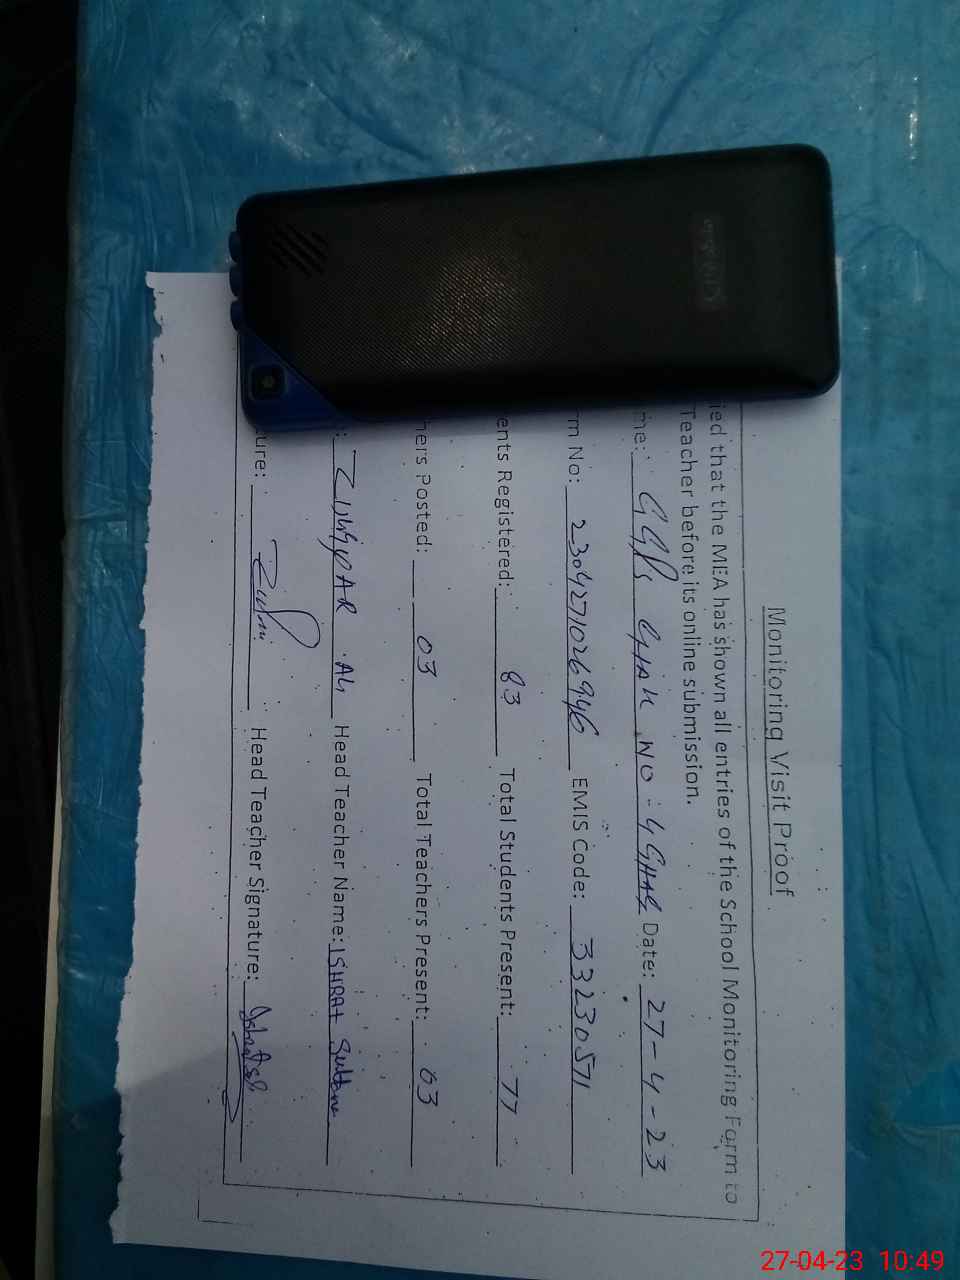 Monitoring Visit Proof
ied that the MEA has shown all entries of the School Monitoring Form to
Teacher before its online submission.
me: GGPS CHAK NO: 4GHAG Date: 27-4-23
rm No: 2304271026946 EMIS Code: 33230571
ents Registered: 83 Total Students Present: 77
hers Posted: 03 Total Teachers Present: 03
: ZulfiqAR Ali Head Teacher Name: ISHRAt Sultana
ture: Head Teacher Signature:
27-04-23 10:49